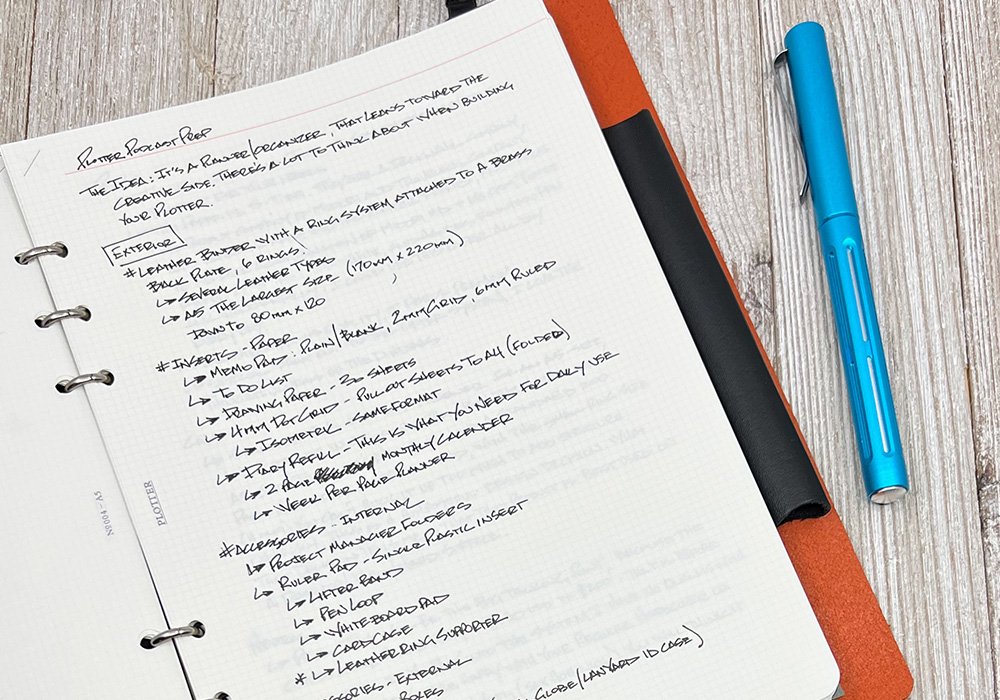 Plotter Podcast Prep
The Idea: It's a Planner/Organizer, that leans toward the
creative side. There's a lot to think about when building
your Plotter.
Exterior
* Leather Binder with a ring system attached to a brass
back plate, 6 rings.
↳ Several Leather Types
↳ A5 the largest size (170mm x 220mm)
Down to 80mm x 120
* Inserts - Paper
↳ Memo Pad: Plain/Blank, 2mm Grid, 6mm Ruled
↳ To Do List
↳ Drawing Paper - 30 sheets
↳ 4mm Dot Grid - Pull out sheets to A4 (folded)
↳ Isometric - Same format
↳ Diary Refill - This is what you need for daily use
↳ 2 Page Monthly Calender
↳ Week Per Page Planner
* Accessories - Internal
↳ Project Manager Folders
↳ Ruler Pad - Single Plastic Insert
↳ Lifter Band
↳ Pen Loop
↳ Whiteboard Pad
↳ Card Case
* ↳ Leather Ring Supporter
ssories - External
Globe/Lanyard ID Case)
PLOTTER
Nº004-A5